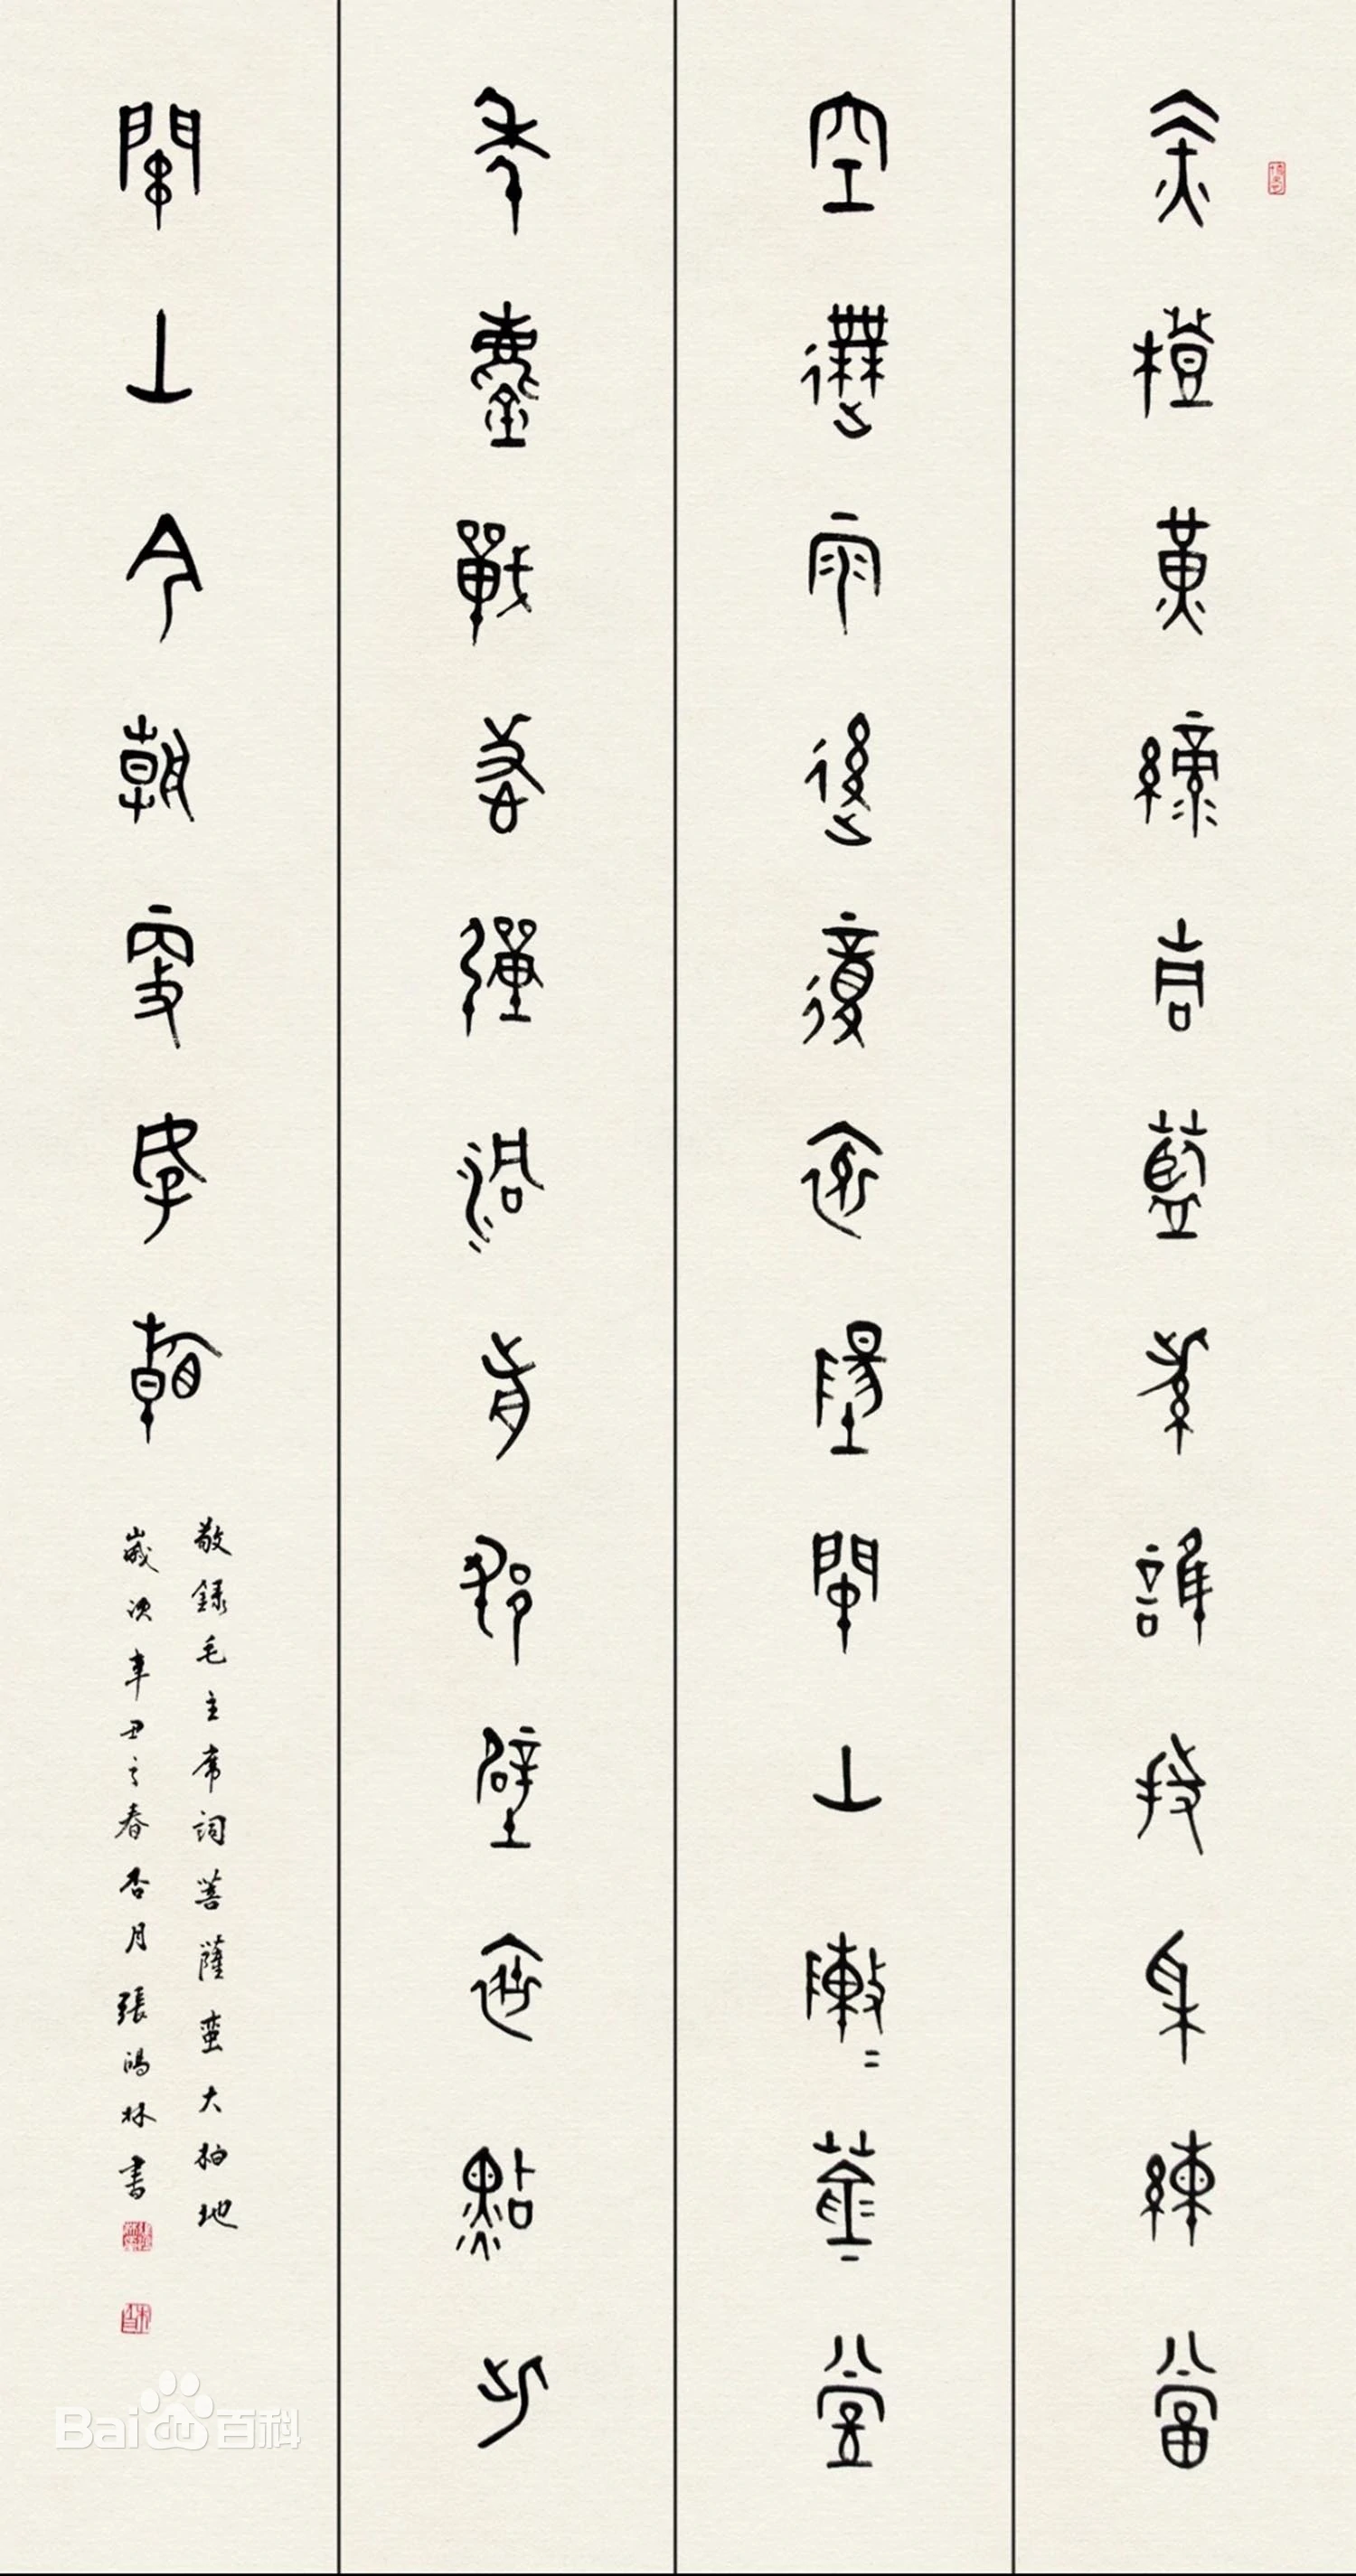 赤橙黃綠青藍紫誰持彩練當
空舞雨後復斜陽關山陣〻蒼當
年鏖戰急彈洞前村壁裝點此
關山今朝更好看
敬録毛主席詞菩薩蛮大柏地
歲次辛丑之春杏月張鴻林書
Baidu百科